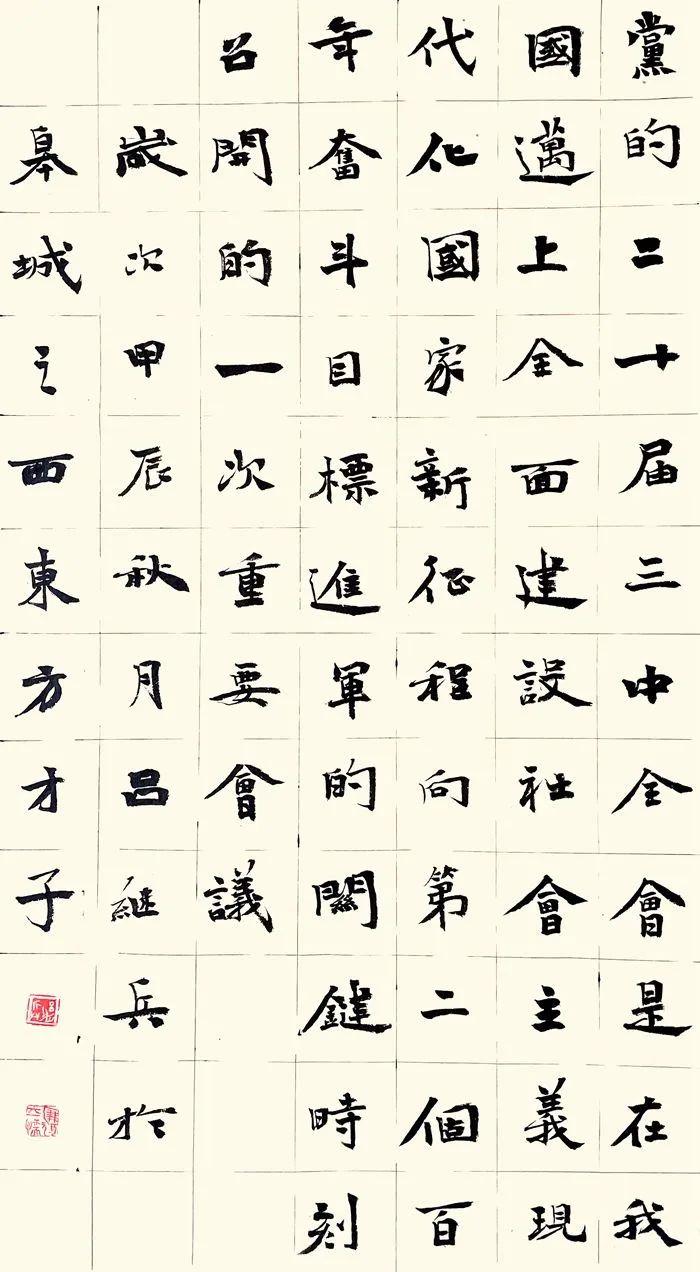 黨的二十届三中全會是在我
國邁上全面建設社會主義現
代化國家新征程向第二個百
年奮斗目標進軍的關鍵時刻
召開的一次重要會議
歲次甲辰秋月吕継兵於
皋城之西東方才子